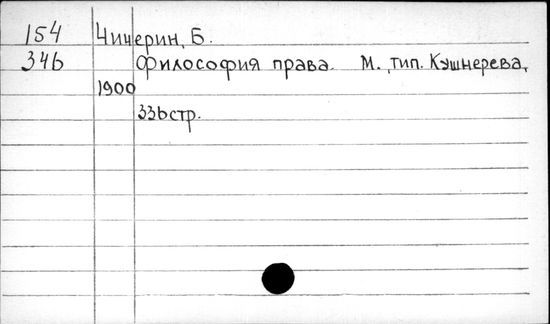 154 Чичерин, Б.
346 Философия права. М., тип. Кэшнерева,
1900
336 стр.